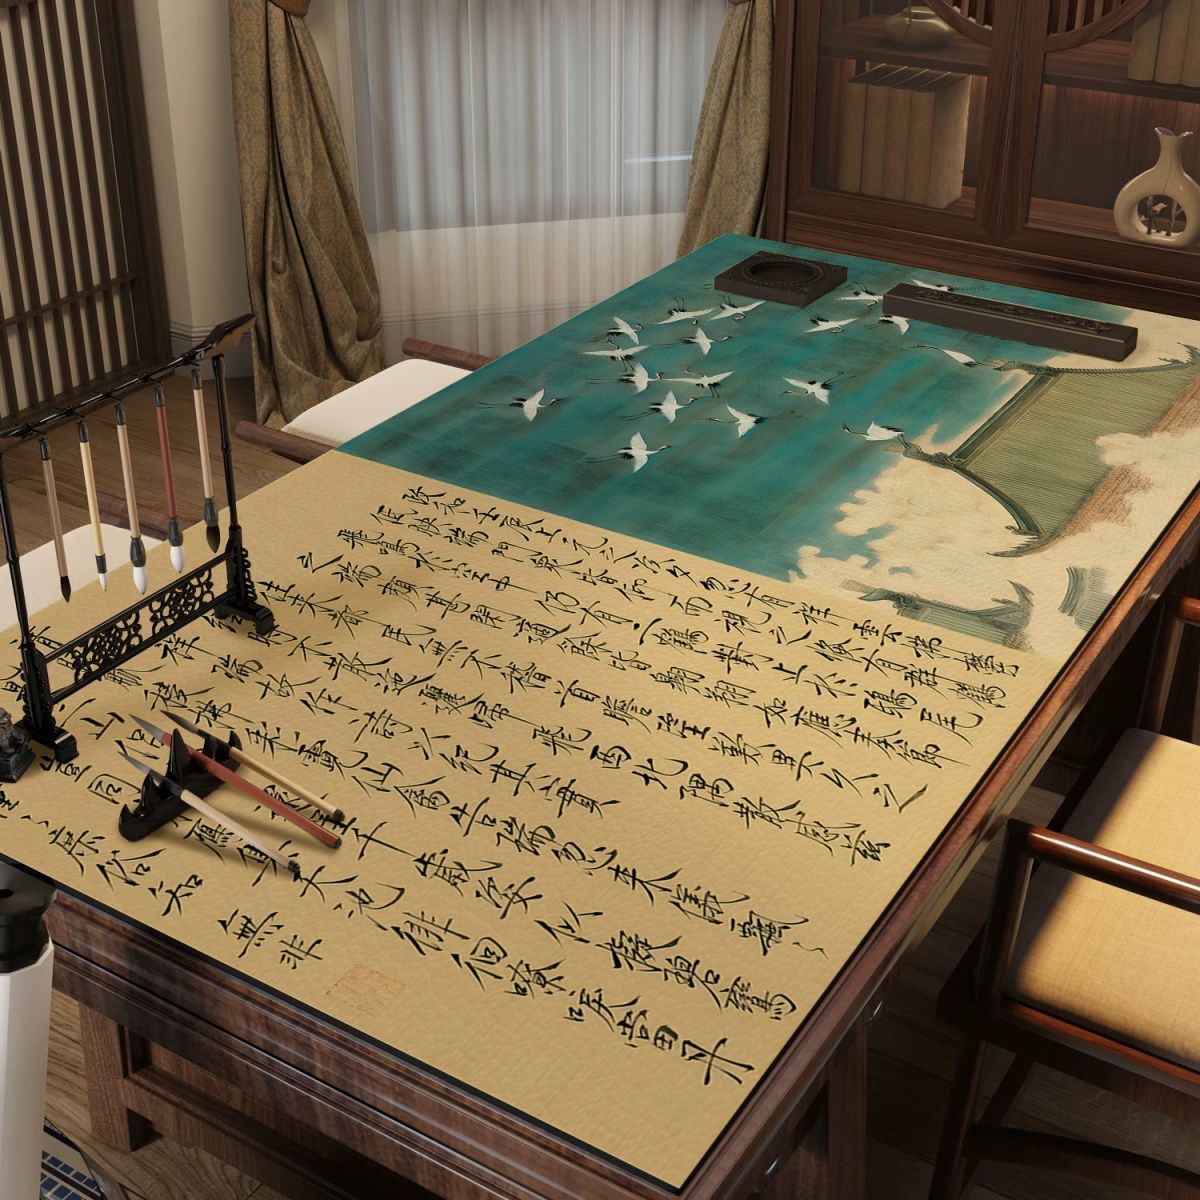 政和壬辰上元之次夕忽有祥雲拂鬱
低映端門衆皆仰而視之倏有群鶴
飛鳴於空中仍有二鶴對止於鴟尾
之端頗甚閒適餘皆翱翔如應奏節
往來都民無不稽首瞻望歎異久之
經時不散迤邐歸飛西北隅散感茲
祥瑞故作詩以紀其實
稜拂彩霓仙禽告瑞忽來儀飄々
山侶呈千歲姿似擬碧鸞
豈同雁集天池徘徊嘹唳當丹
々庶俗知
無非